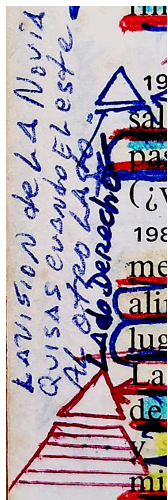 LA VISION de LA NOVIA
QUISAS CUANDO EL este
AL OTRO LADO.
LADO DERECHO
19
sal
pas
(¿v
198
me
alin
lug
La
de
y
mi